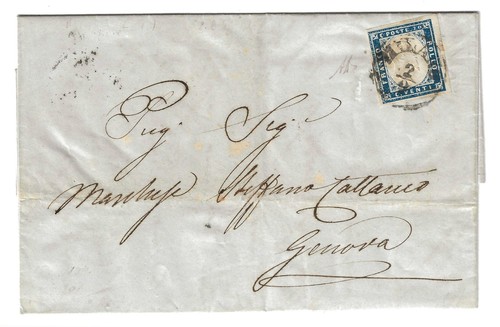 C. POSTE 20
FRANCO
BOLLO
C. VENTI
Preg. Sig.
Marchese Steffano Cattaneo
Genova